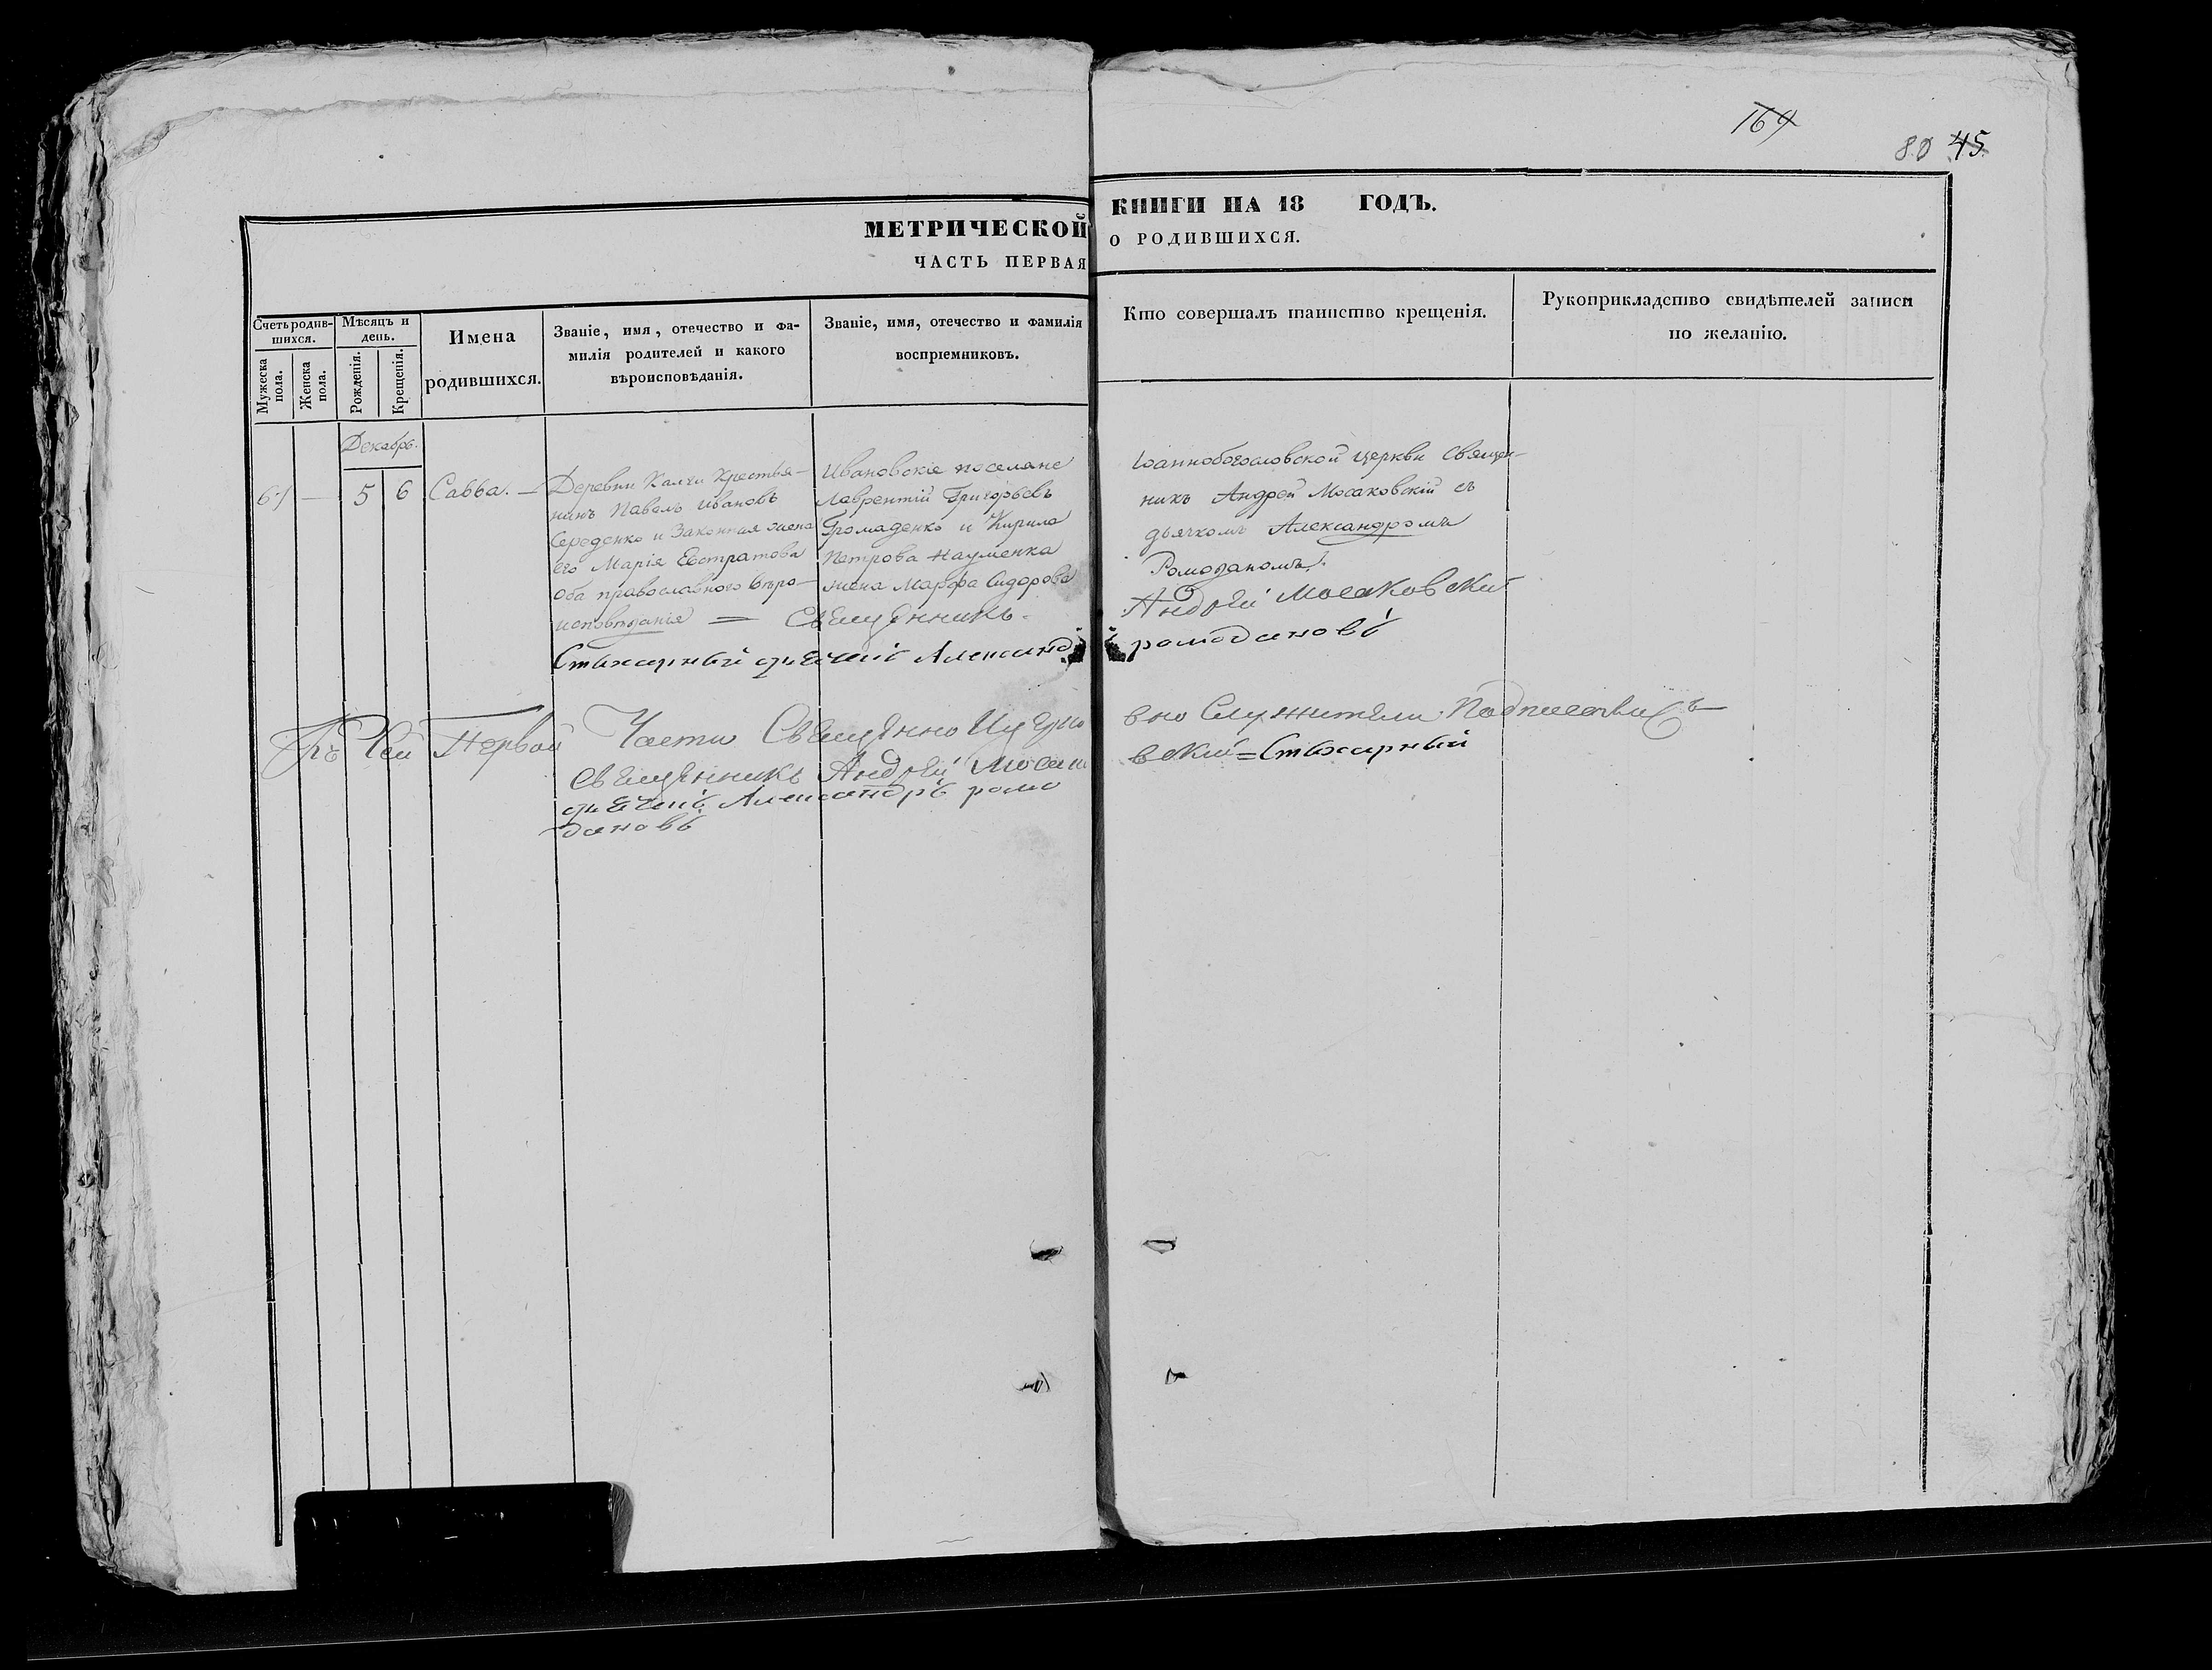 169
80 45.
МЕТРИЧЕСКОЙ КНИГИ НА 18 ГОДЪ.
ЧАСТЬ ПЕРВАЯ О РОДИВШИХСЯ.
Счетъ родившихся.
Мужеска пола.
Женска пола.
Мѣсяцъ и день.
Рожденія.
Крещенія.
Имена
родившихся.
Званіе, имя, отечество и фа-
милія родителей и какого
вѣроисповѣданія.
Званіе, имя, отечество и фамилія
воспріемниковъ.
Кто совершалъ таинство крещенія.
Рукоприкладство свидѣтелей записи
по желанію.
Декабрь.
5
6
Савва. —
Деревни Крестья-
нинъ Павелъ Ивановъ
Середенко и Законная жена
его Марія Евстратова
оба православнаго вѣро-
исповѣданія =
Ивановскіе поселяне
Лаврентій Григорьевъ
Громаденко и Кирила
Петрова Науменка
жена Марфа Сидорова
Іоаннобогословской церкви Священ-
никъ Андрей Мосаковскій съ
дьячкомъ Александромъ
Ромодановымъ.
Священникъ Андрей Мосаковскій
Стихарный дьячекъ Александръ ромодановъ
Къ сей Первой Части Священно Церковно Служители Подписались
Священникъ Андрей Мосаковскій = Стихарный
дьячекъ Александръ ромо
дановъ